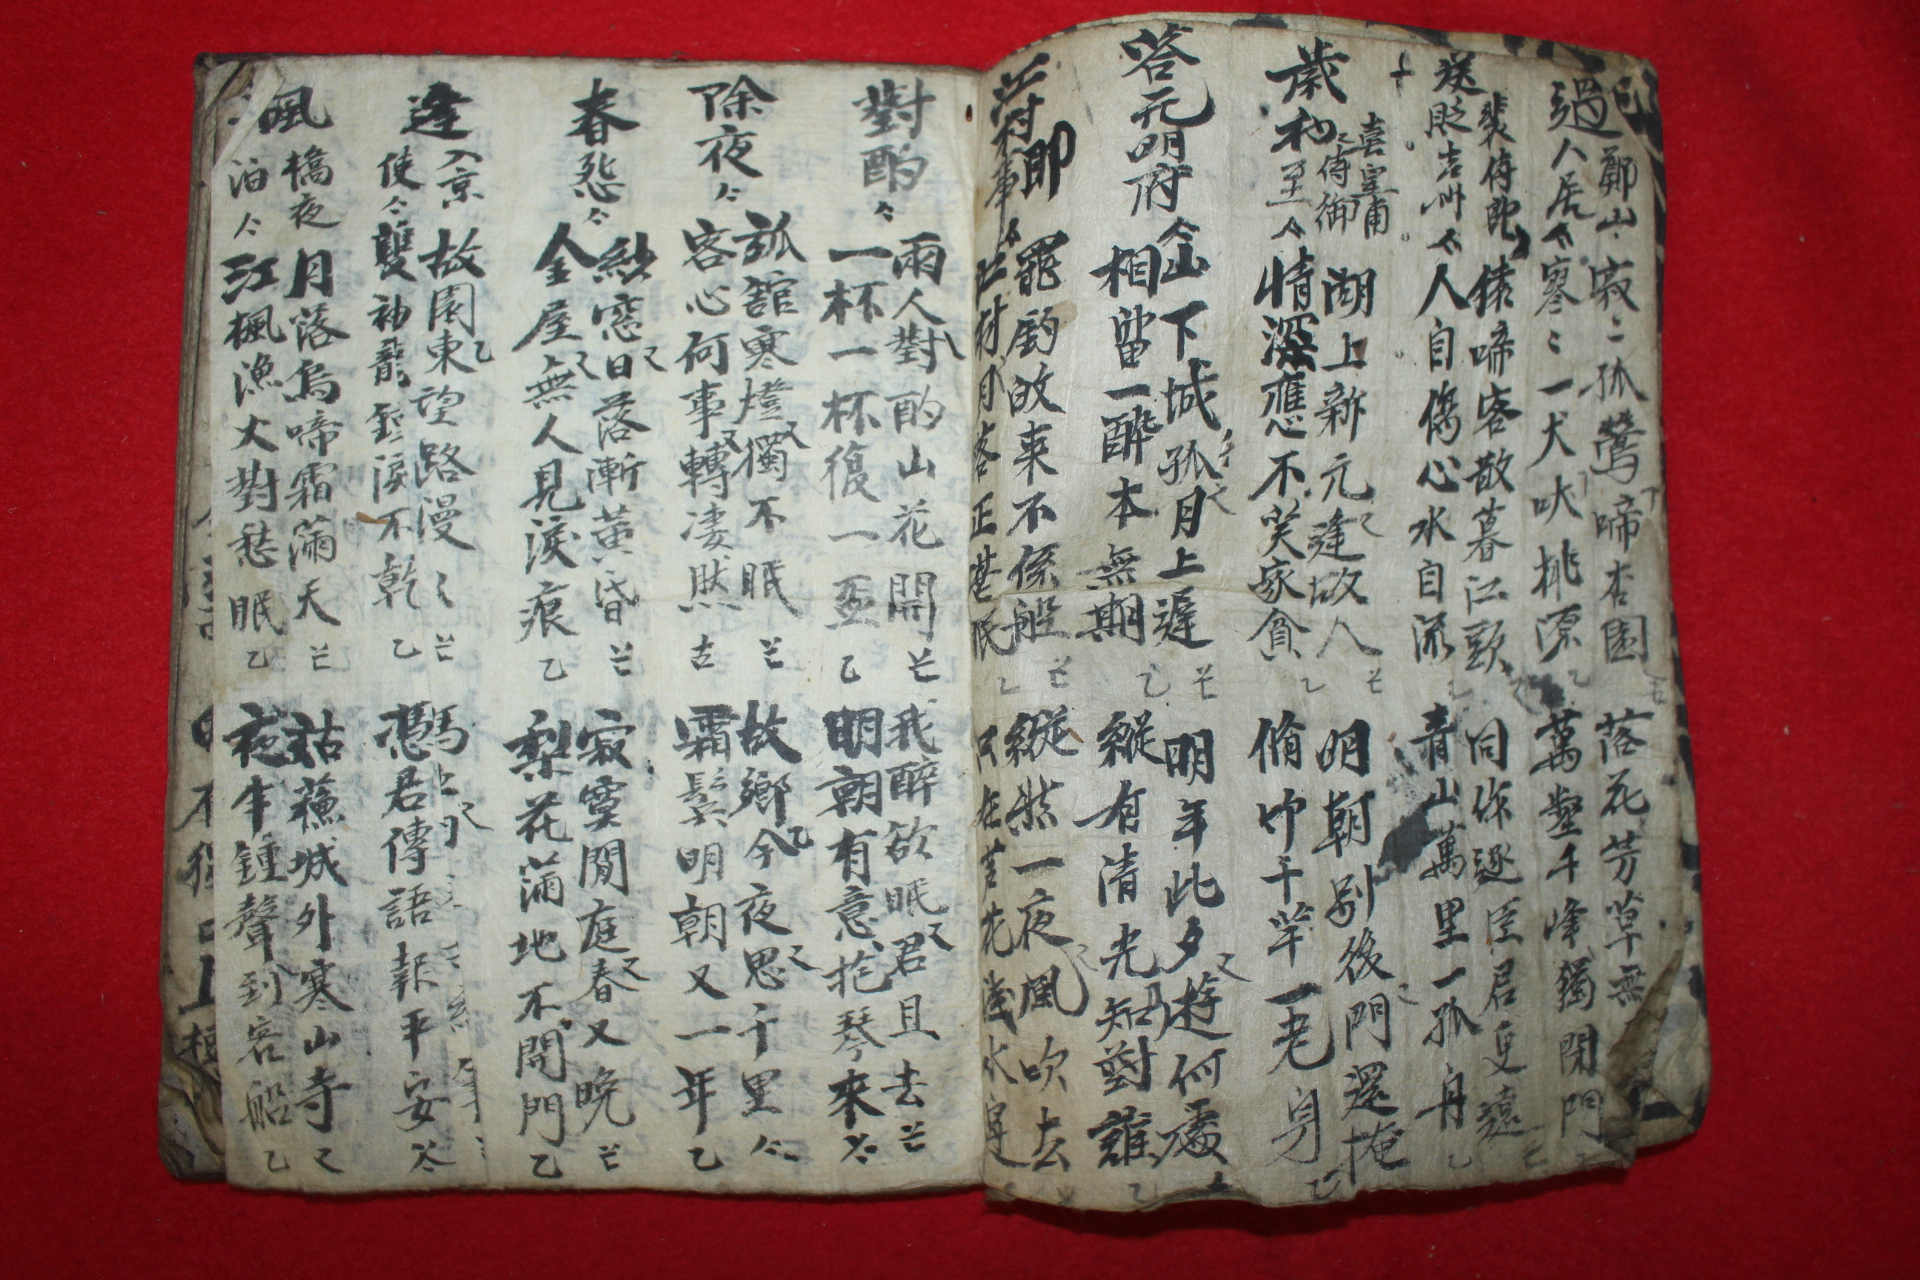 過鄭山人居
寂〻孤鶯啼杏園
寥〻一犬吠桃源
落花芳草無
萬壑千峰獨閉門
送裴侍郎貶吉州
猿啼客散暮江頭
人自傷心水自流
同作逐臣君更遠
青山萬里一孤舟
歲初喜皇甫侍御至
湖上新元逢故人
情深應不笑家貧
明朝別後門還掩
脩竹千竿一老身
答元明府
山下城孤月上遲
相留一醉本無期
明年此夕遊何處
縱有清光知對誰
江村即事
罷釣故來不係船
江村月落正堪眠
縱然一夜風吹去
只在芦花淺水邊
對酌
兩人對酌山花開
一杯一杯復一盃
我醉欲眠君且去
明朝有意抱琴來
除夜
孤館寒燈獨不眠
客心何事轉凄然
故鄉今夜思千里
霜鬂明朝又一年
春怨
紗窓日落漸黃昏
金屋無人見淚痕
寂寞閒庭春又晚
梨花滿地不開門
逢入京使
故園東望路漫〻
雙袖龍鍾淚不乾
馬上
憑君傳語報平安
楓橋夜泊
月落烏啼霜滿天
江楓漁火對愁眠
姑蘇城外寒山寺
夜半鍾聲到客船